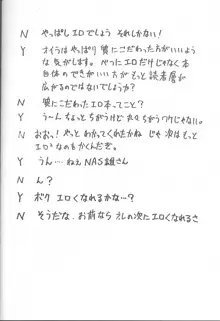 N やっぱしエロでしょう それしかない!
Y オイラはやっぱり 質にこだわった方がいいよう
な気がします。べつにエロだけじゃなく本
自体のできがいい方がもっと読者層が
広がるのではないでしょうか?
N 質にこだわったエロ本ってこと?
Y う〜ん ちょっとちがうけど 丸々ちがうワケじゃないっス。
N おおっ!やっとわかってくれたかね じゃ 次はもっと
エロうなのをかくんだぞ。
Y うん…ねぇ NAS雄さん
N ん?
Y ボク エロくなれるかな…?
N そうだな、お前なら オレの次にエロくなれるさ